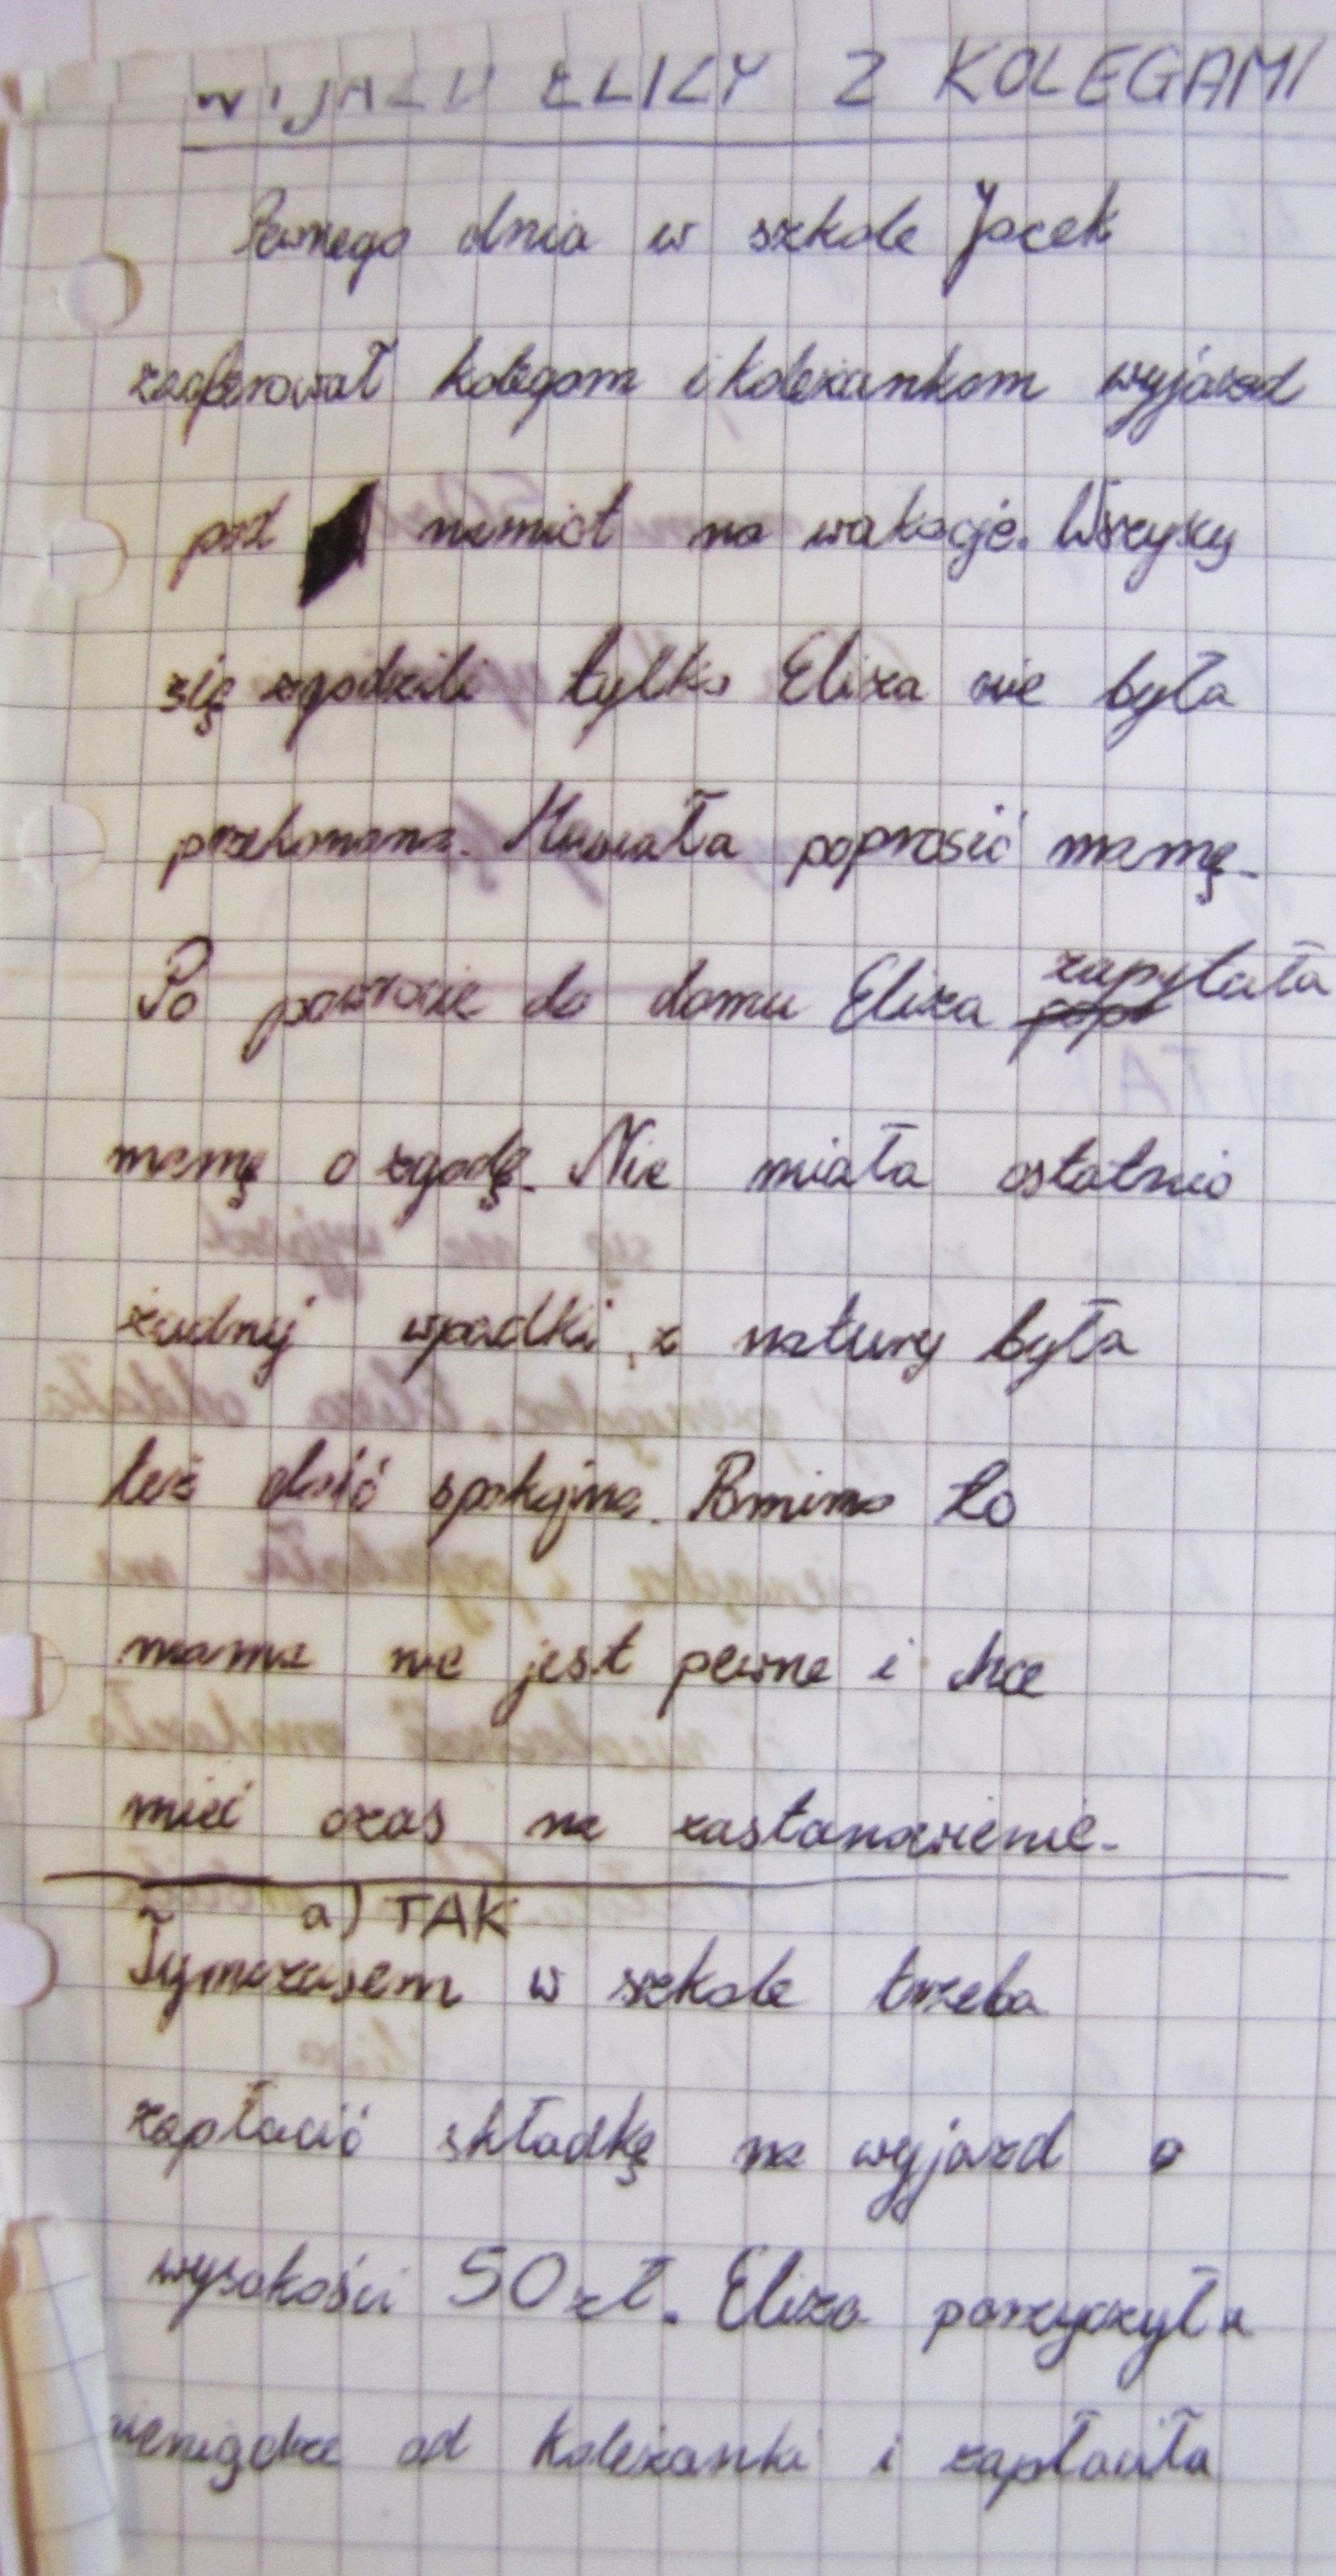 WIJAZD ELIZY Z KOLEGAMI
Pewnego dnia w szkole Jacek
zaoferował kolegom i koleżankom wyjazd
pod namiot na wakacje. Wszyscy
się zgodzili tylko Eliza nie była
przekonana. Musiała poprosić mamę.
Po powrocie do domu Eliza zapytała
mamę o zgodę. Nie miała ostatnio
żadnej wpadki, z natury była
też dość spokojna. Pomimo to
mama nie jest pewna i chce
mieć czas na zastanowienie.
a) TAK
Tymczasem w szkole trzeba
zapłacić składkę na wyjazd o
wysokości 50 zł. Eliza pożyczyła
pieniądze od koleżanki i zapłaciła